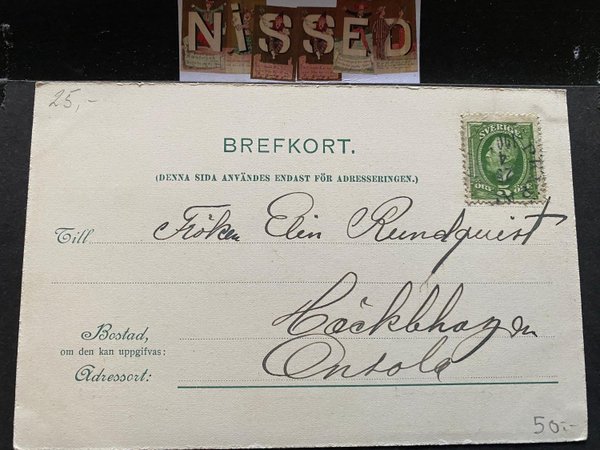 NISSED
25,-
BREFKORT.
(DENNA SIDA ANVÄNDES ENDAST FÖR ADRESSERINGEN.)
SVERIGE
5
ÖRE
Till Fröken Elin Rundquist
Bostad,
om den kan uppgifvas:
Adressort:
50:-